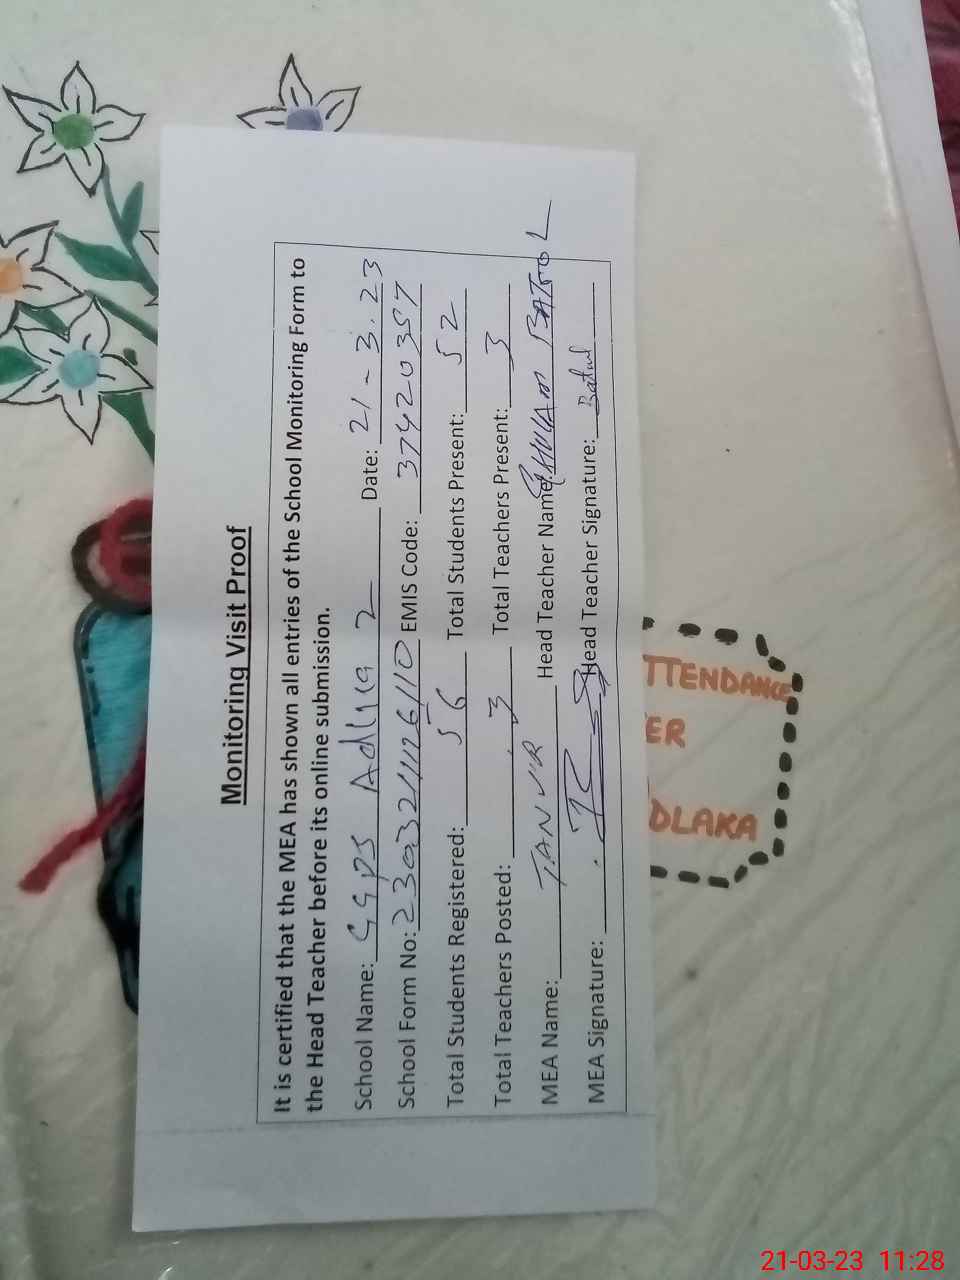 Monitoring Visit Proof
It is certified that the MEA has shown all entries of the School Monitoring Form to
the Head Teacher before its online submission.
School Name: GGPS Adlaka 2 Date: 21-3.23
School Form No: EMIS Code: 37420357
Total Students Registered: 56 Total Students Present: 52
Total Teachers Posted: 3 Total Teachers Present: 3
MEA Name: TANVIR Head Teacher Name: GHULAM BATOOL
MEA Signature: Head Teacher Signature: Batul
TTENDANCE
ER
DLAKA
21-03-23 11:28